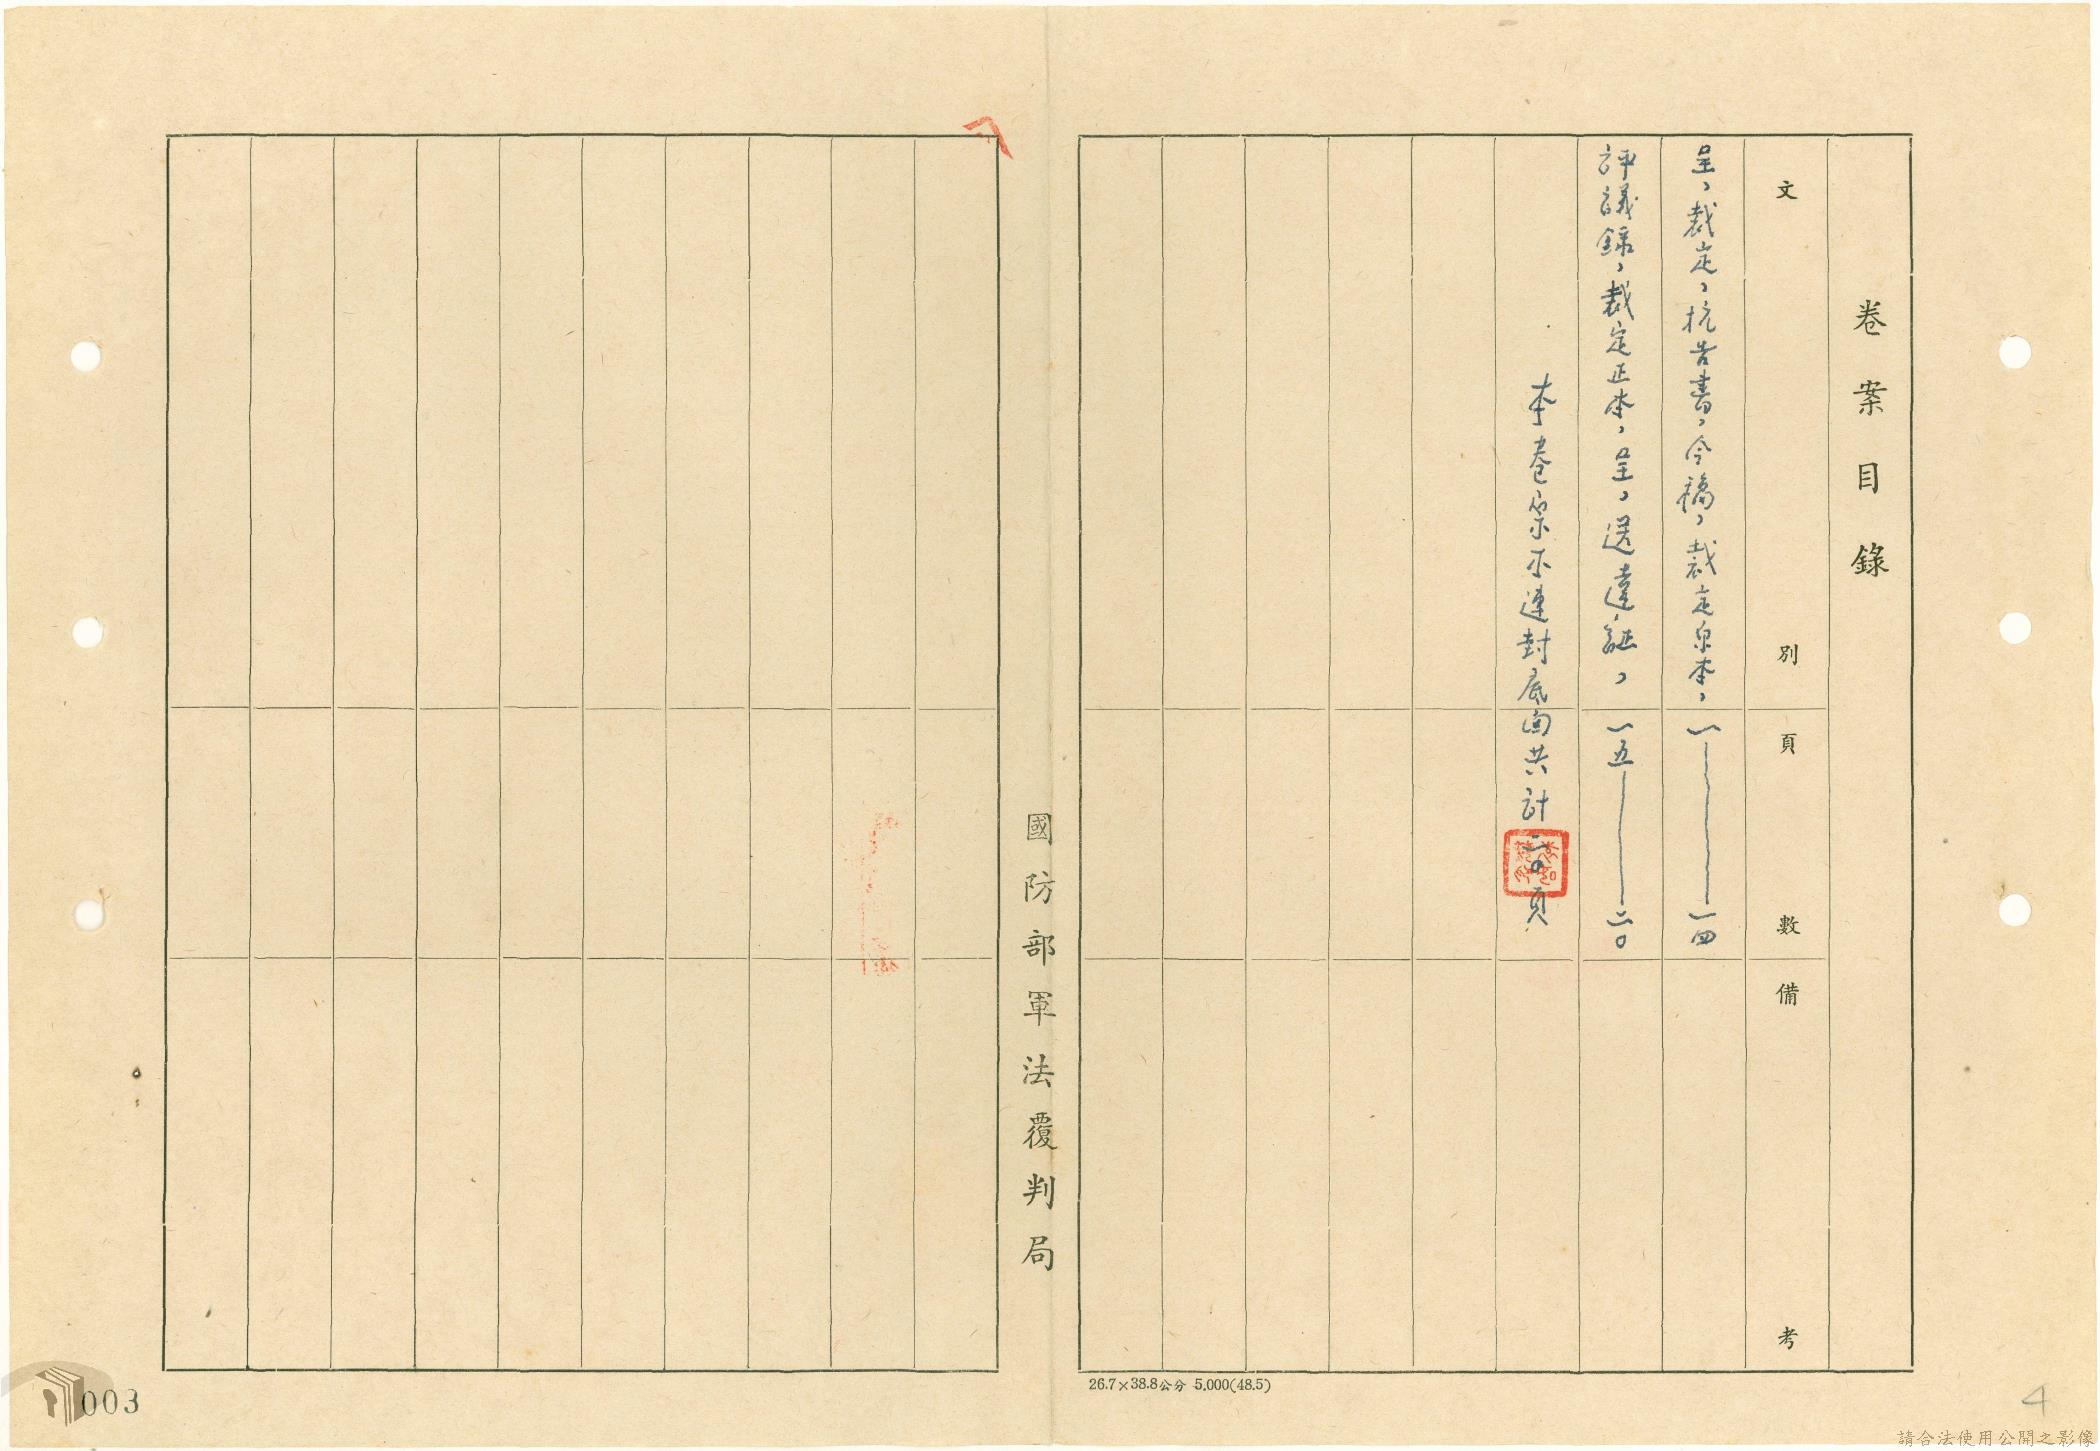 卷案目錄
文別
頁數
備考
呈，裁定，抗告書，令稿，裁定原本，
一——一四
評議錄，裁定正本，呈，送達証，
一五——二〇
本卷宗不連封底面共計二〇頁
國防部軍法覆判局
26.7×38.8公分 5,000(48.5)
003
4
請合法使用公開之影像